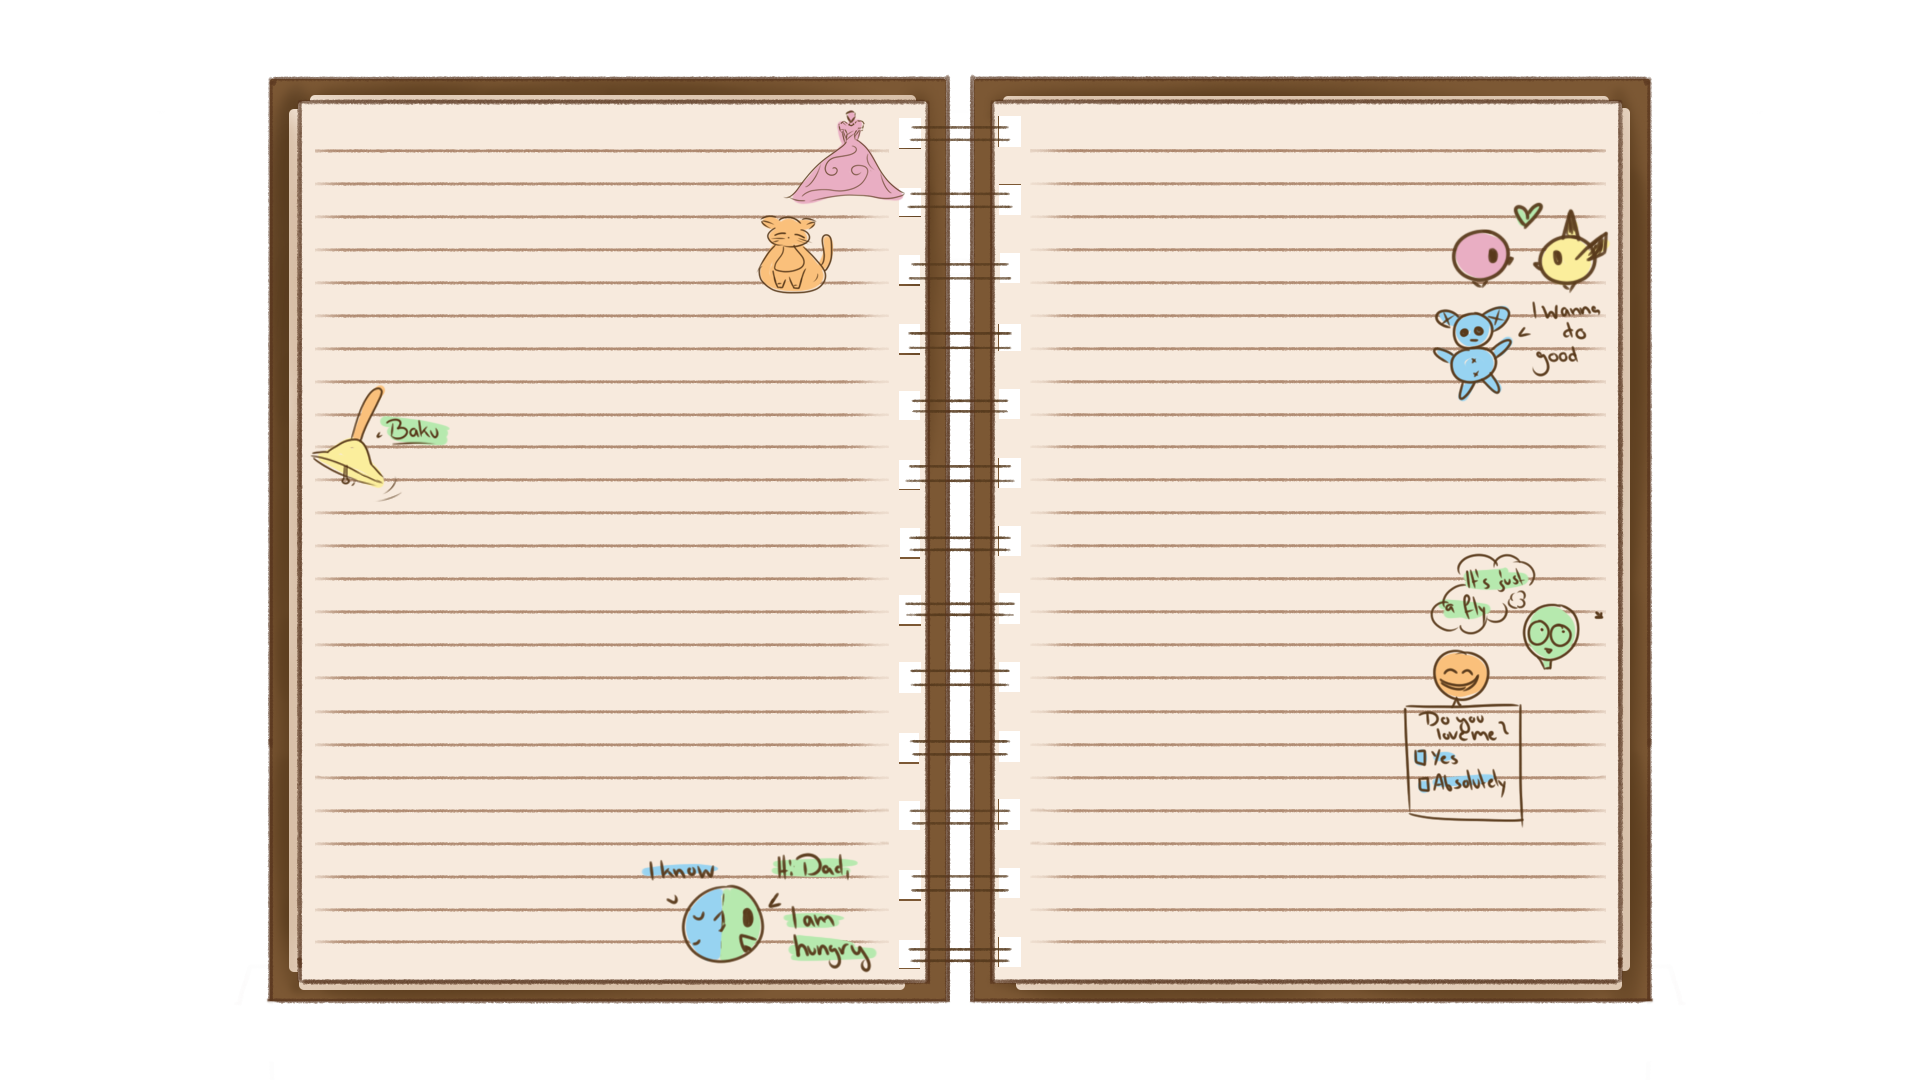 Baku
I know
Hi Dad,
I am
hungry
I wanna
do
good
It's just
a fly
Do you
love me?
Yes
Absolutely